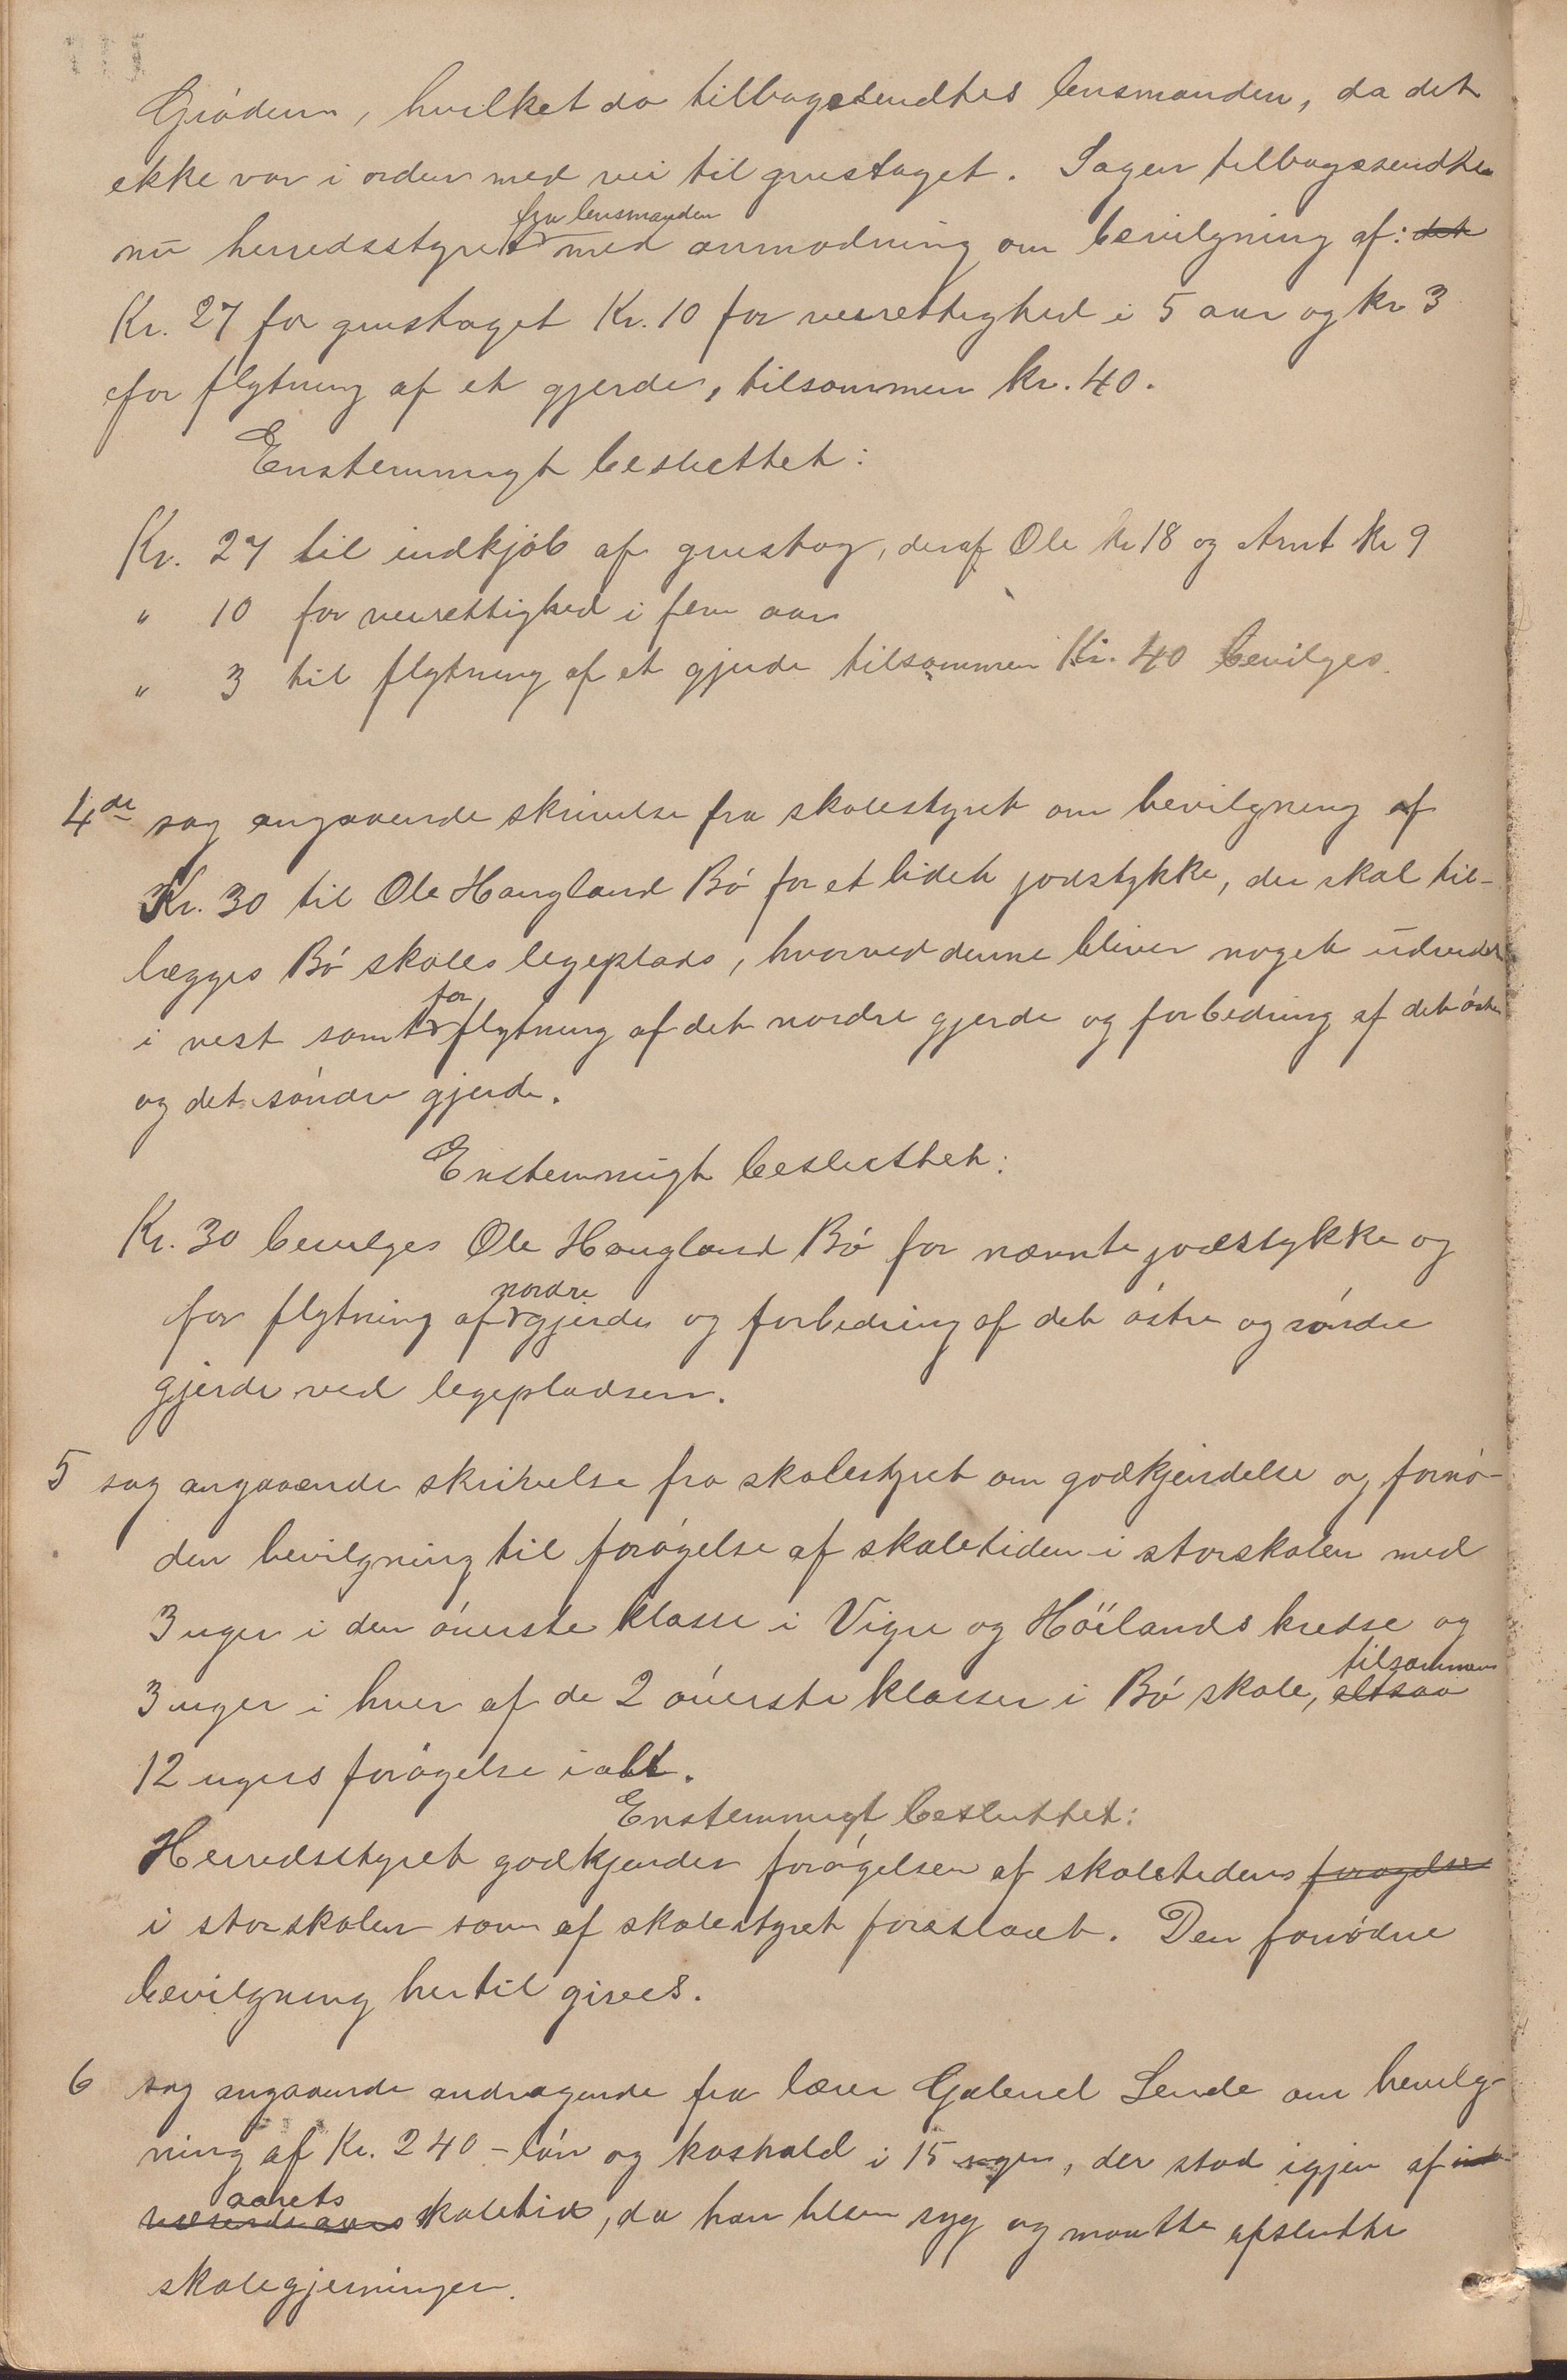 Gródem, hvilket da tilbagesendtes lensmanden, da det
ikke var i orden med vei til grustaget. Sagen tilbagesendtes
nu herredsstyret fra lensmanden med anmodning om bevilgning af: det
Kr. 27 for grustaget Kr. 10 for veirettighed i 5 aar og kr 3
for flytning af et gjerde, tilsammen kr. 40.
Enstemmigt besluttet:
Kr. 27 til indkjób af grustag, deraf Ole kr 18 og Arnt kr 9
" 10 for veirettighed i fem aar
" 3 til flytning af et gjerde tilsammen Kr. 40 bevilges.
4de sag angaaende skrivelse fra skolestyret om bevilgning af
Kr. 30 til Ole Haugland Bó for et lidet jordstykke, der skal til-
lægges Bó skoles legeplads, hvorved denne bliver noget udvidet
i vest samt for flytning af det nordre gjerde og forbedring af det óstre
og det sóndre gjerde.
Enstemmigt besluttet:
Kr. 30 bevilges Ole Haugland Bó for nævnte jordstykke og
for flytning af nordre gjerde og forbedring af det óstre og sóndre
gjerde ved legepladsen.
5 sag angaaende skrivelse fra skolestyret om godkjendelse og fornó-
den bevilgning til forógelse af skoletiden i storskolen med
3 uger i den óverste klasse i Vigre og Höilands kredse og
3 uger i hver af de 2 óverste klasser i Bó skole, altsaa tilsammen
12 ugers forógelse ialt.
Enstemmigt besluttet:
Herredsstyret godkjender forógelsen af skoletidens forøgelse
i storskolen som af skolestyret foreslaaet. Den fornódne
bevilgning hertil gives.
6 sag angaaende andragende fra lærer Gabriel Lende om bevilg-
ning af Kr. 240 - lón og kosthold i 15 uger, der stod igjen af inde-
værende aars aarets skoletid, da han blev syg og maatte afslutte
skolegjerningen.